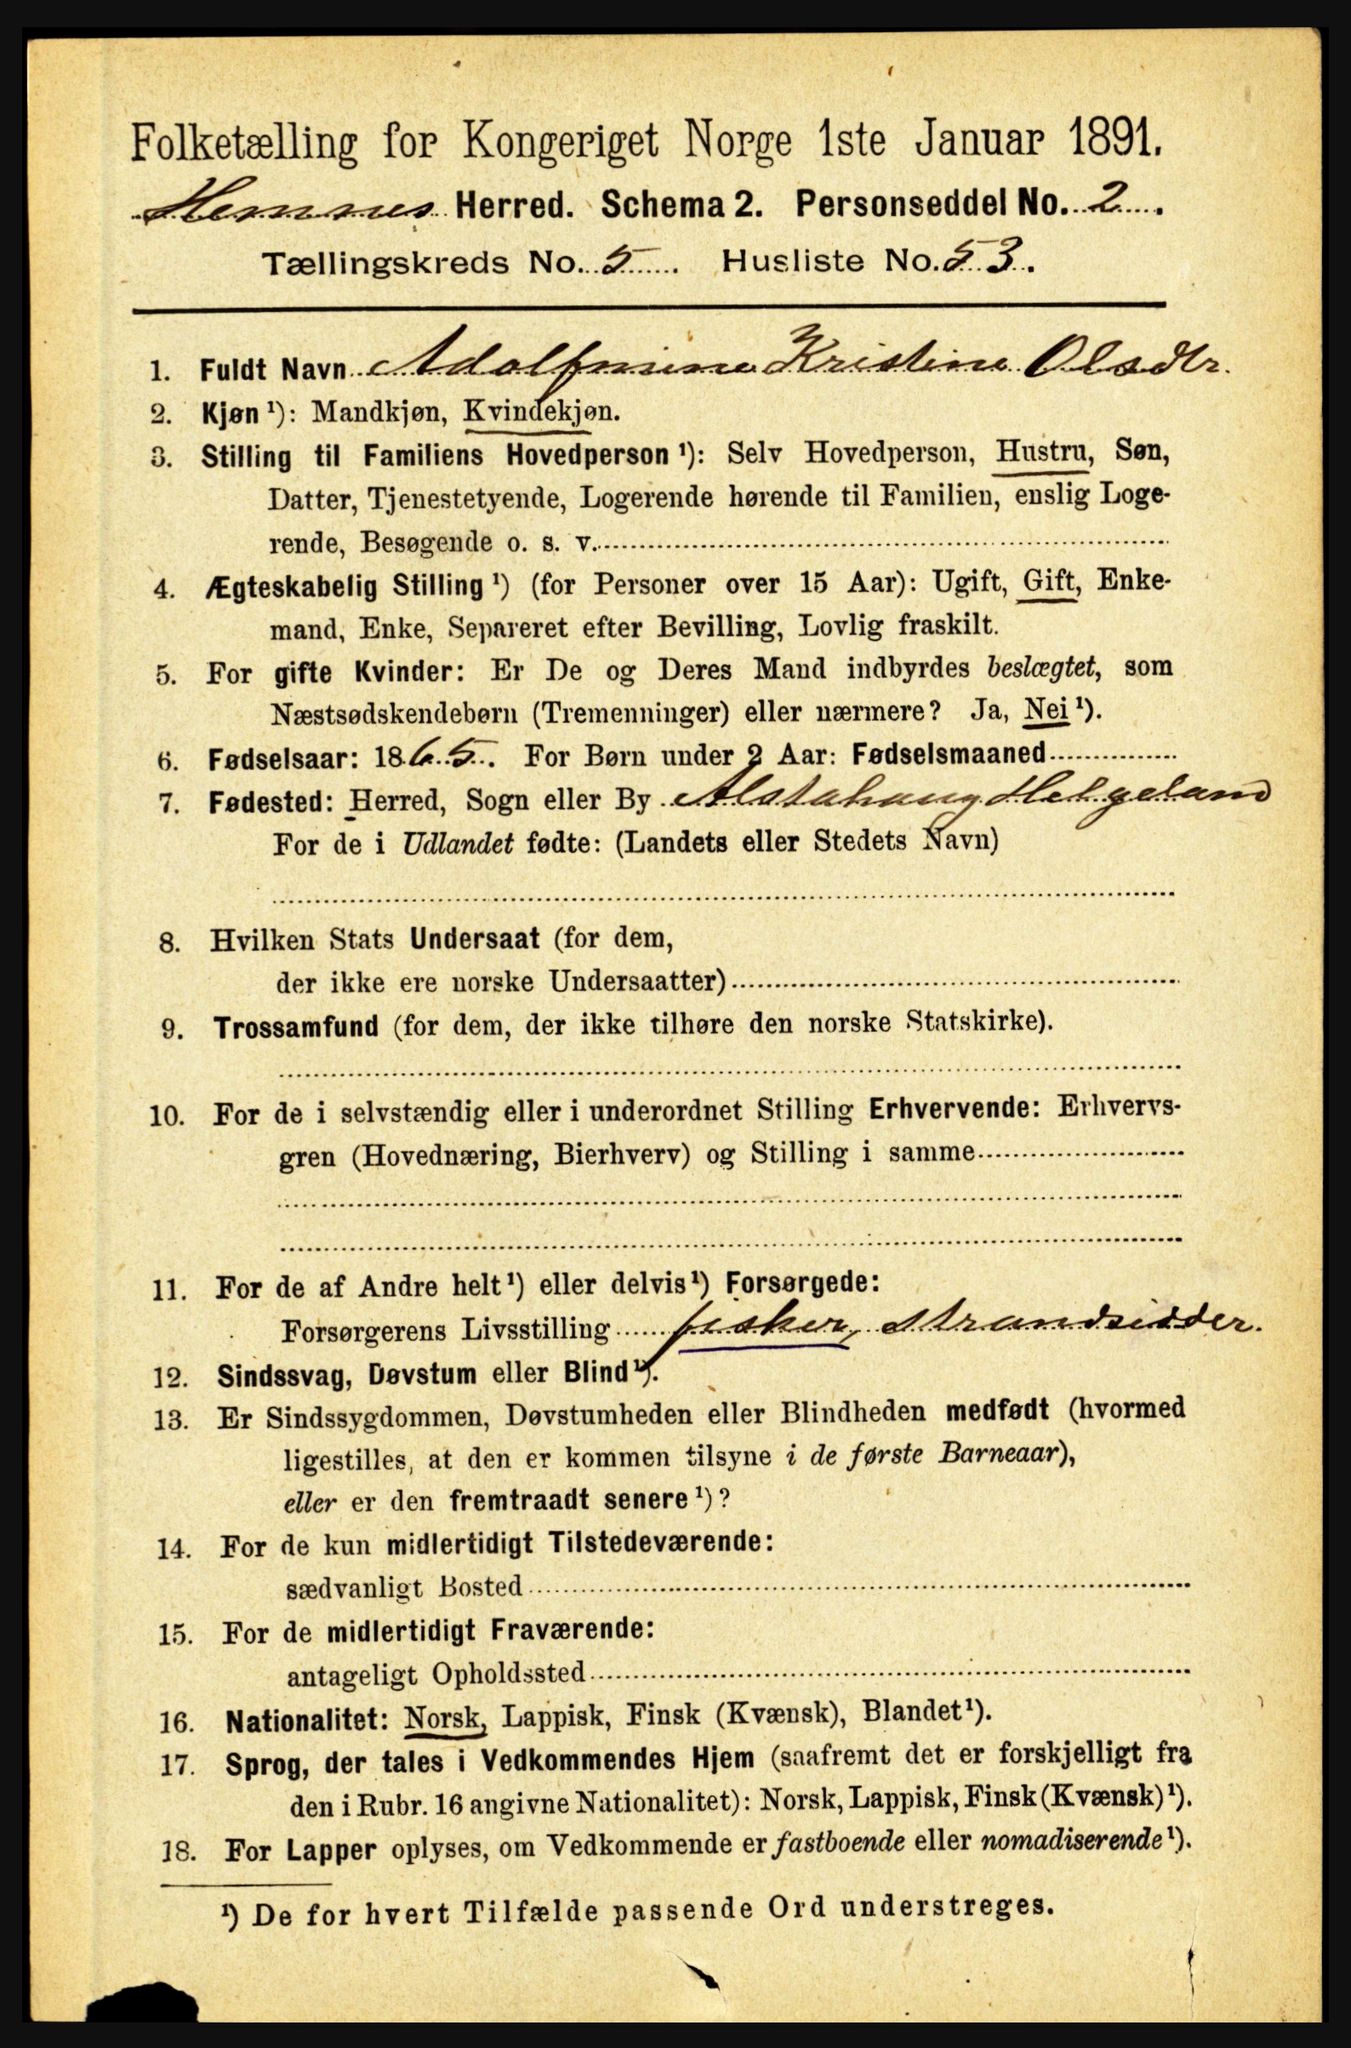 Folketælling for Kongeriget Norge 1ste Januar 1891.
Hemnes Herred. Schema 2. Personseddel No. 2.
Tællingskreds No. 5. Husliste No. 53.
1. Fuldt Navn Adolfmine Kristine Olsdtr.
2. Kjøn ¹): Mandkjøn, Kvindekjøn.
3. Stilling til Familiens Hovedperson ¹): Selv Hovedperson, Hustru, Søn,
Datter, Tjenestetyende, Logerende hørende til Familien, enslig Loge-
rende, Besøgende o. s. v.
4. Ægteskabelig Stilling ¹) (for Personer over 15 Aar): Ugift, Gift, Enke-
mand, Enke, Separeret efter Bevilling, Lovlig fraskilt.
5. For gifte Kvinder: Er De og Deres Mand indbyrdes beslægtet, som
Næstsødskendebørn (Tremenninger) eller nærmere? Ja, Nei ¹).
6. Fødselsaar: 1865. For Børn under 2 Aar: Fødselsmaaned
7. Fødested: Herred, Sogn eller By Alstahaug Helgeland
For de i Udlandet fødte: (Landets eller Stedets Navn)
8. Hvilken Stats Undersaat (for dem,
der ikke ere norske Undersaatter)
9. Trossamfund (for dem, der ikke tilhøre den norske Statskirke).
10. For de i selvstændig eller i underordnet Stilling Erhvervende: Erhvervs-
gren (Hovednæring, Bierhverv) og Stilling i samme
11. For de af Andre helt ¹) eller delvis ¹) Forsørgede:
Forsørgerens Livsstilling fisker, strandsidder.
12. Sindssvag, Døvstum eller Blind ¹).
13. Er Sindssygdommen, Døvstumheden eller Blindheden medfødt (hvormed
ligestilles, at den er kommen tilsyne i de første Barneaar),
eller er den fremtraadt senere ¹)?
14. For de kun midlertidigt Tilstedeværende:
sædvanligt Bosted
15. For de midlertidigt Fraværende:
antageligt Opholdssted
16. Nationalitet: Norsk, Lappisk, Finsk (Kvænsk), Blandet ¹).
17. Sprog, der tales i Vedkommendes Hjem (saafremt det er forskjelligt fra
den i Rubr. 16 angivne Nationalitet): Norsk, Lappisk, Finsk (Kvænsk) ¹).
18. For Lapper oplyses, om Vedkommende er fastboende eller nomadiserende ¹).
¹) De for hvert Tilfælde passende Ord understreges.